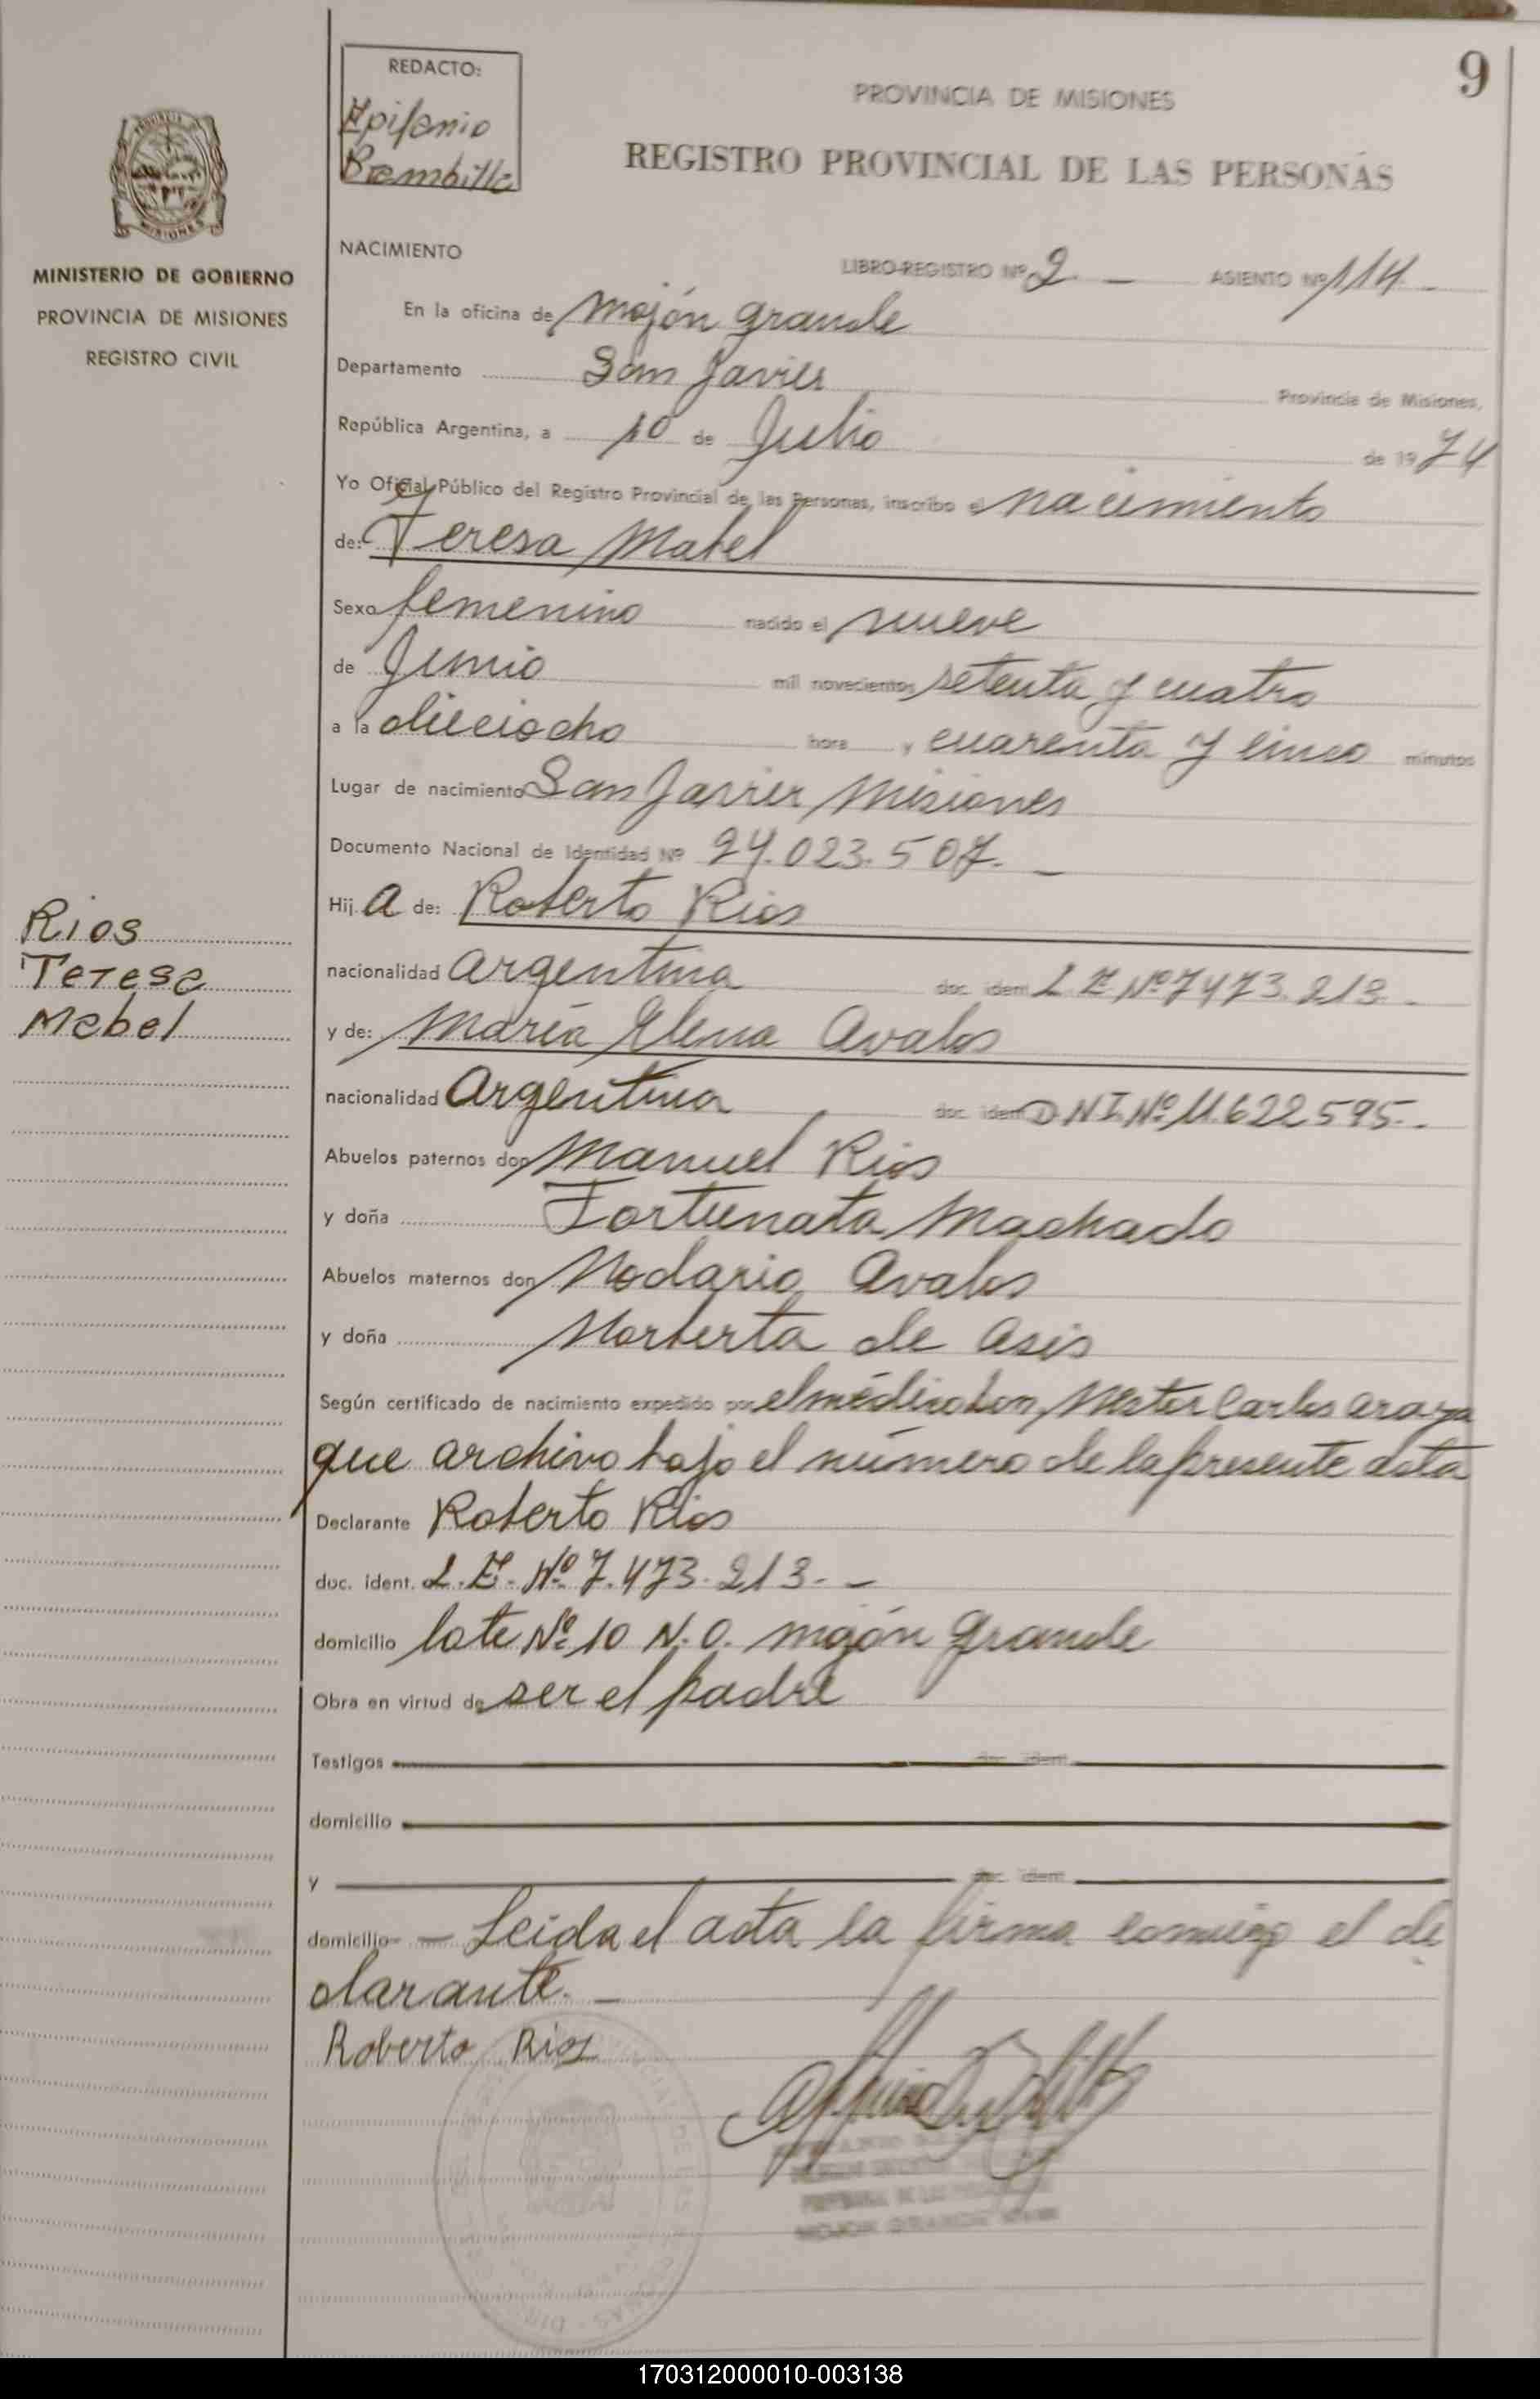 9
REDACTO:
Epifanio
Brambilla
PROVINCIA DE MISIONES
REGISTRO PROVINCIAL DE LAS PERSONAS
MISIONES
MINISTERIO DE GOBIERNO
PROVINCIA DE MISIONES
REGISTRO CIVIL
NACIMIENTO
LIBRO-REGISTRO Nº 2 — ASIENTO Nº 114 -
En la oficina de Mojón grande
Departamento San Javier Provincia de Misiones,
República Argentina, a 10 de Julio de 1974
Yo Oficial Público del Registro Provincial de las Personas, inscribo el nacimiento
de: Teresa Mabel
Sexo femenino nacido el nueve
de Junio mil novecientos setenta y cuatro
a la dieciocho hora y cuarenta y cinco minutos
Lugar de nacimiento San Javier Misiones
Documento Nacional de Identidad Nº 24.023.507. —
Rios
Teresa
Mabel
Hij a de: Roberto Rios
nacionalidad argentina doc. ident. L E Nº 7473.213. -
y de: María Elena Avalos
nacionalidad Argentina doc. ident. D.N.I. Nº 11.622595.-
Abuelos paternos don Manuel Rios
y doña Fortunata Machado
Abuelos maternos don Nodario Avalos
y doña Norberta de Asis
Según certificado de nacimiento expedido por el médico Don, Nestor Carlos Araya
que archivo bajo el número de la presente acta
Declarante Roberto Rios
doc. ident. L.E. Nº 7.473.213. —
domicilio lote Nº 10 N.O. mojón grande
Obra en virtud de ser el padre
Testigos doc. ident.
domicilio
y doc. ident.
domicilio — Leida el acta la firma conmigo el de
clarante. —
Roberto Rios
MOJON GRANDE
170312000010-003138